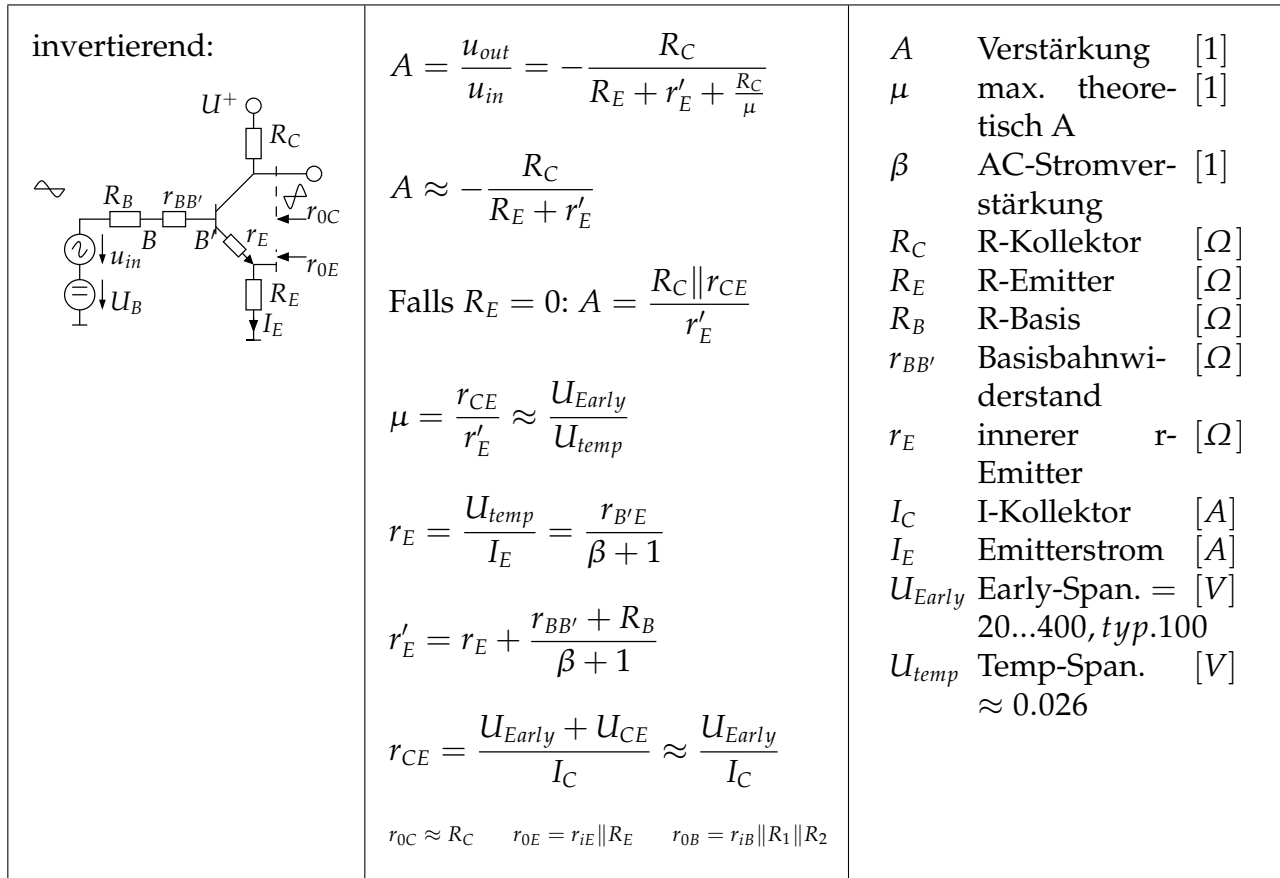 invertierend:
U⁺
R_C
R_B r_{BB'}
B B' r_E r_{0C}
u_{in} r_{0E}
U_B R_E
I_E
A = \frac{u_{out}}{u_{in}} = -\frac{R_C}{R_E + r'_E + \frac{R_C}{\mu}}
A ≈ -\frac{R_C}{R_E + r'_E}
Falls R_E = 0: A = \frac{R_C \| r_{CE}}{r'_E}
\mu = \frac{r_{CE}}{r'_E} ≈ \frac{U_{Early}}{U_{temp}}
r_E = \frac{U_{temp}}{I_E} = \frac{r_{B'E}}{\beta + 1}
r'_E = r_E + \frac{r_{BB'} + R_B}{\beta + 1}
r_{CE} = \frac{U_{Early} + U_{CE}}{I_C} ≈ \frac{U_{Early}}{I_C}
r_{0C} ≈ R_C r_{0E} = r_{iE} \| R_E r_{0B} = r_{iB} \| R_1 \| R_2
A Verstärkung [1]
μ max. theore- [1]
tisch A
β AC-Stromver- [1]
stärkung
R_C R-Kollektor [Ω]
R_E R-Emitter [Ω]
R_B R-Basis [Ω]
r_{BB'} Basisbahnwi- [Ω]
derstand
r_E innerer r- [Ω]
Emitter
I_C I-Kollektor [A]
I_E Emitterstrom [A]
U_{Early} Early-Span. = [V]
20...400, typ.100
U_{temp} Temp-Span. [V]
≈ 0.026